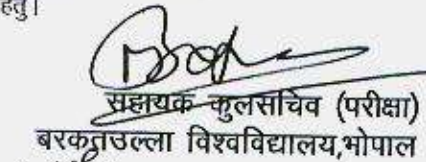 हेतु।
सहायक कुलसचिव (परीक्षा)
बरकतउल्ला विश्वविद्यालय,भोपाल